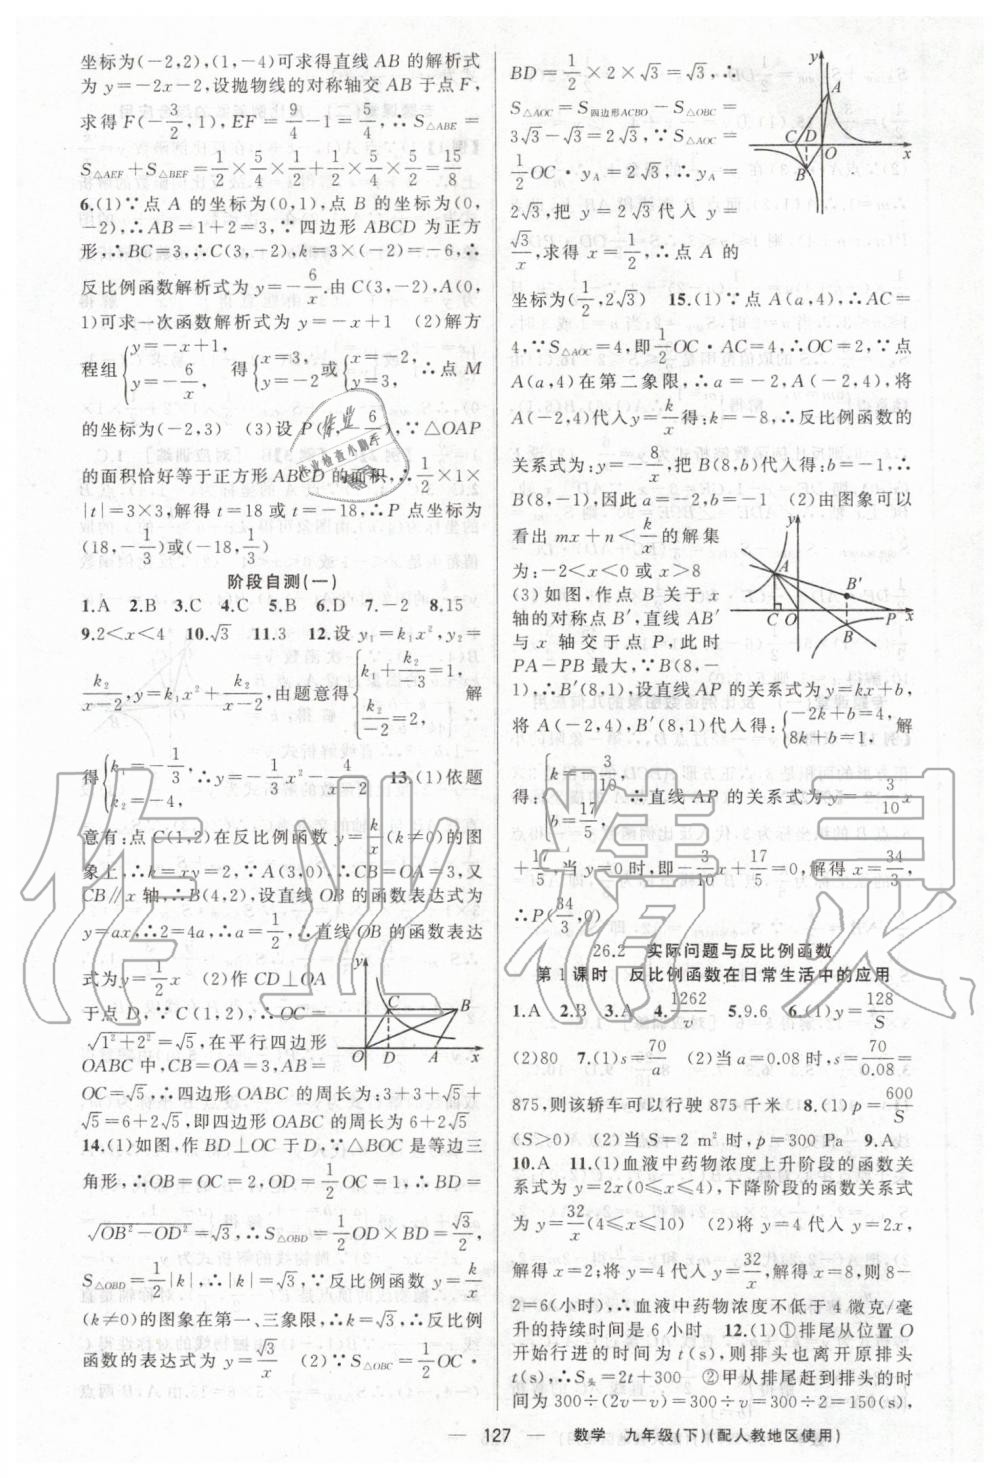 坐标为(-2,2),(1,-4)可求得直线 AB 的解析式
为 y=-2x-2,设抛物线的对称轴交 AB 于点 F,
求得 F(-3/2,1),EF=9/4-1=5/4,∴S△ABE=
S△AEF+S△BEF=1/2×5/4×2+1/2×5/4×1=15/8
6.(1)∵点 A 的坐标为(0,1),点 B 的坐标为(0,
-2),∴AB=1+2=3,∵四边形 ABCD 为正方
形,∴BC=3,∴C(3,-2),k=3×(-2)=-6,∴
反比例函数解析式为 y=-6/x.由 C(3,-2),A(0,
1)可求一次函数解析式为 y=-x+1 (2)解方
程组{y=-x+1, y=-6/x, 得{x=3, y=-2或{x=-2, y=3, ∴点 M
的坐标为(-2,3) (3)设 P(t,-6/t),∵△OAP
的面积恰好等于正方形 ABCD 的面积,∴1/2×1×
|t|=3×3,解得 t=18 或 t=-18,∴P 点坐标为
(18,-1/3)或(-18,1/3)
阶段自测(一)
1.A 2.B 3.C 4.C 5.B 6.D 7.-2 8.15
9.2<x<4 10.√3 11.3 12.设 y₁=k₁x²,y₂=
k₂/(x-2),y=k₁x²+k₂/(x-2),由题意得{k₁+k₂/(-3)=1, k₂/2=-2, 解
得{k₁=-1/3, k₂=-4, ∴y=-1/3x²-4/(x-2) 13.(1)依题
意有:点 C(1,2)在反比例函数 y=k/x(k≠0)的图
象上,∴k=xy=2,∵A(3,0),∴CB=OA=3,又
CB∥x 轴,∴B(4,2),设直线 OB 的函数表达式为
y=ax,∴2=4a,∴a=1/2,∴直线 OB 的函数表达
式为 y=1/2x (2)作 CD⊥OA
于点 D,∵C(1,2),∴OC=
√(1²+2²)=√5,在平行四边形
OABC 中,CB=OA=3,AB=
OC=√5,∴四边形 OABC 的周长为:3+3+√5+
√5=6+2√5,即四边形 OABC 的周长为 6+2√5
14.(1)如图,作 BD⊥OC 于 D,∵△BOC 是等边三
角形,∴OB=OC=2,OD=1/2OC=1,∴BD=
√(OB²-OD²)=√3,∴S△OBD=1/2OD×BD=√3/2,
S△OBD=1/2|k|,∴|k|=√3,∵反比例函数 y=k/x
(k≠0)的图象在第一、三象限,∴k=√3,∴反比例
函数的表达式为 y=√3/x (2)∵S△OBC=1/2OC·
BD=1/2×2×√3=√3,∴
S△AOC=S四边形ACBO-S△OBC=
3√3-√3=2√3,∵S△AOC=
1/2OC·yA=2√3,∴yA=
2√3,把 y=2√3代入 y=
√3/x,求得 x=1/2,∴点 A 的
坐标为(1/2,2√3) 15.(1)∵点 A(a,4),∴AC=
4,∵S△AOC=4,即1/2OC·AC=4,∴OC=2,∵点
A(a,4)在第二象限,∴a=-2,∴A(-2,4),将
A(-2,4)代入 y=k/x得:k=-8,∴反比例函数的
关系式为:y=-8/x,把 B(8,b)代入得:b=-1,∴
B(8,-1),因此 a=-2,b=-1 (2)由图象可以
看出 mx+n<k/x的解集
为:-2<x<0 或 x>8
(3)如图,作点 B 关于 x
轴的对称点 B′,直线 AB′
与 x 轴交于点 P,此时
PA-PB 最大,∵B(8,-
1),∴B′(8,1),设直线 AP 的关系式为 y=kx+b,
将 A(-2,4),B′(8,1)代入得:{-2k+b=4, 8k+b=1, 解
得:{k=-3/10, b=17/5, ∴直线 AP 的关系式为 y=-3/10x
+17/5,当 y=0时,即-3/10x+17/5=0,解得 x=34/3,
∴P(34/3,0)
26.2 实际问题与反比例函数
第1课时 反比例函数在日常生活中的应用
1.A 2.B 3.A 4.1262/v 5.9.6 6.(1)y=128/S
(2)80 7.(1)s=70/a (2)当 a=0.08 时,s=70/0.08=
875,则该轿车可以行驶 875 千米 8.(1)p=600/S
(S>0) (2)当 S=2 m²时,p=300 Pa 9.A
10.A 11.(1)血液中药物浓度上升阶段的函数关
系式为 y=2x(0≤x≤4),下降阶段的函数关系式
为 y=32/x(4≤x≤10) (2)将 y=4 代入 y=2x,
解得 x=2;将 y=4 代入 y=32/x,解得 x=8,则 8-
2=6(小时),∴血液中药物浓度不低于 4 微克/毫
升的持续时间是 6 小时 12.(1)①排尾从位置 O
开始行进的时间为 t(s),则排头也离开原排头
t(s),∴S头=2t+300 ②甲从排尾赶到排头的时间
为 300÷(2v-v)=300÷v=300÷2=150(s),
127 数学 九年级(下)(配人教地区使用)